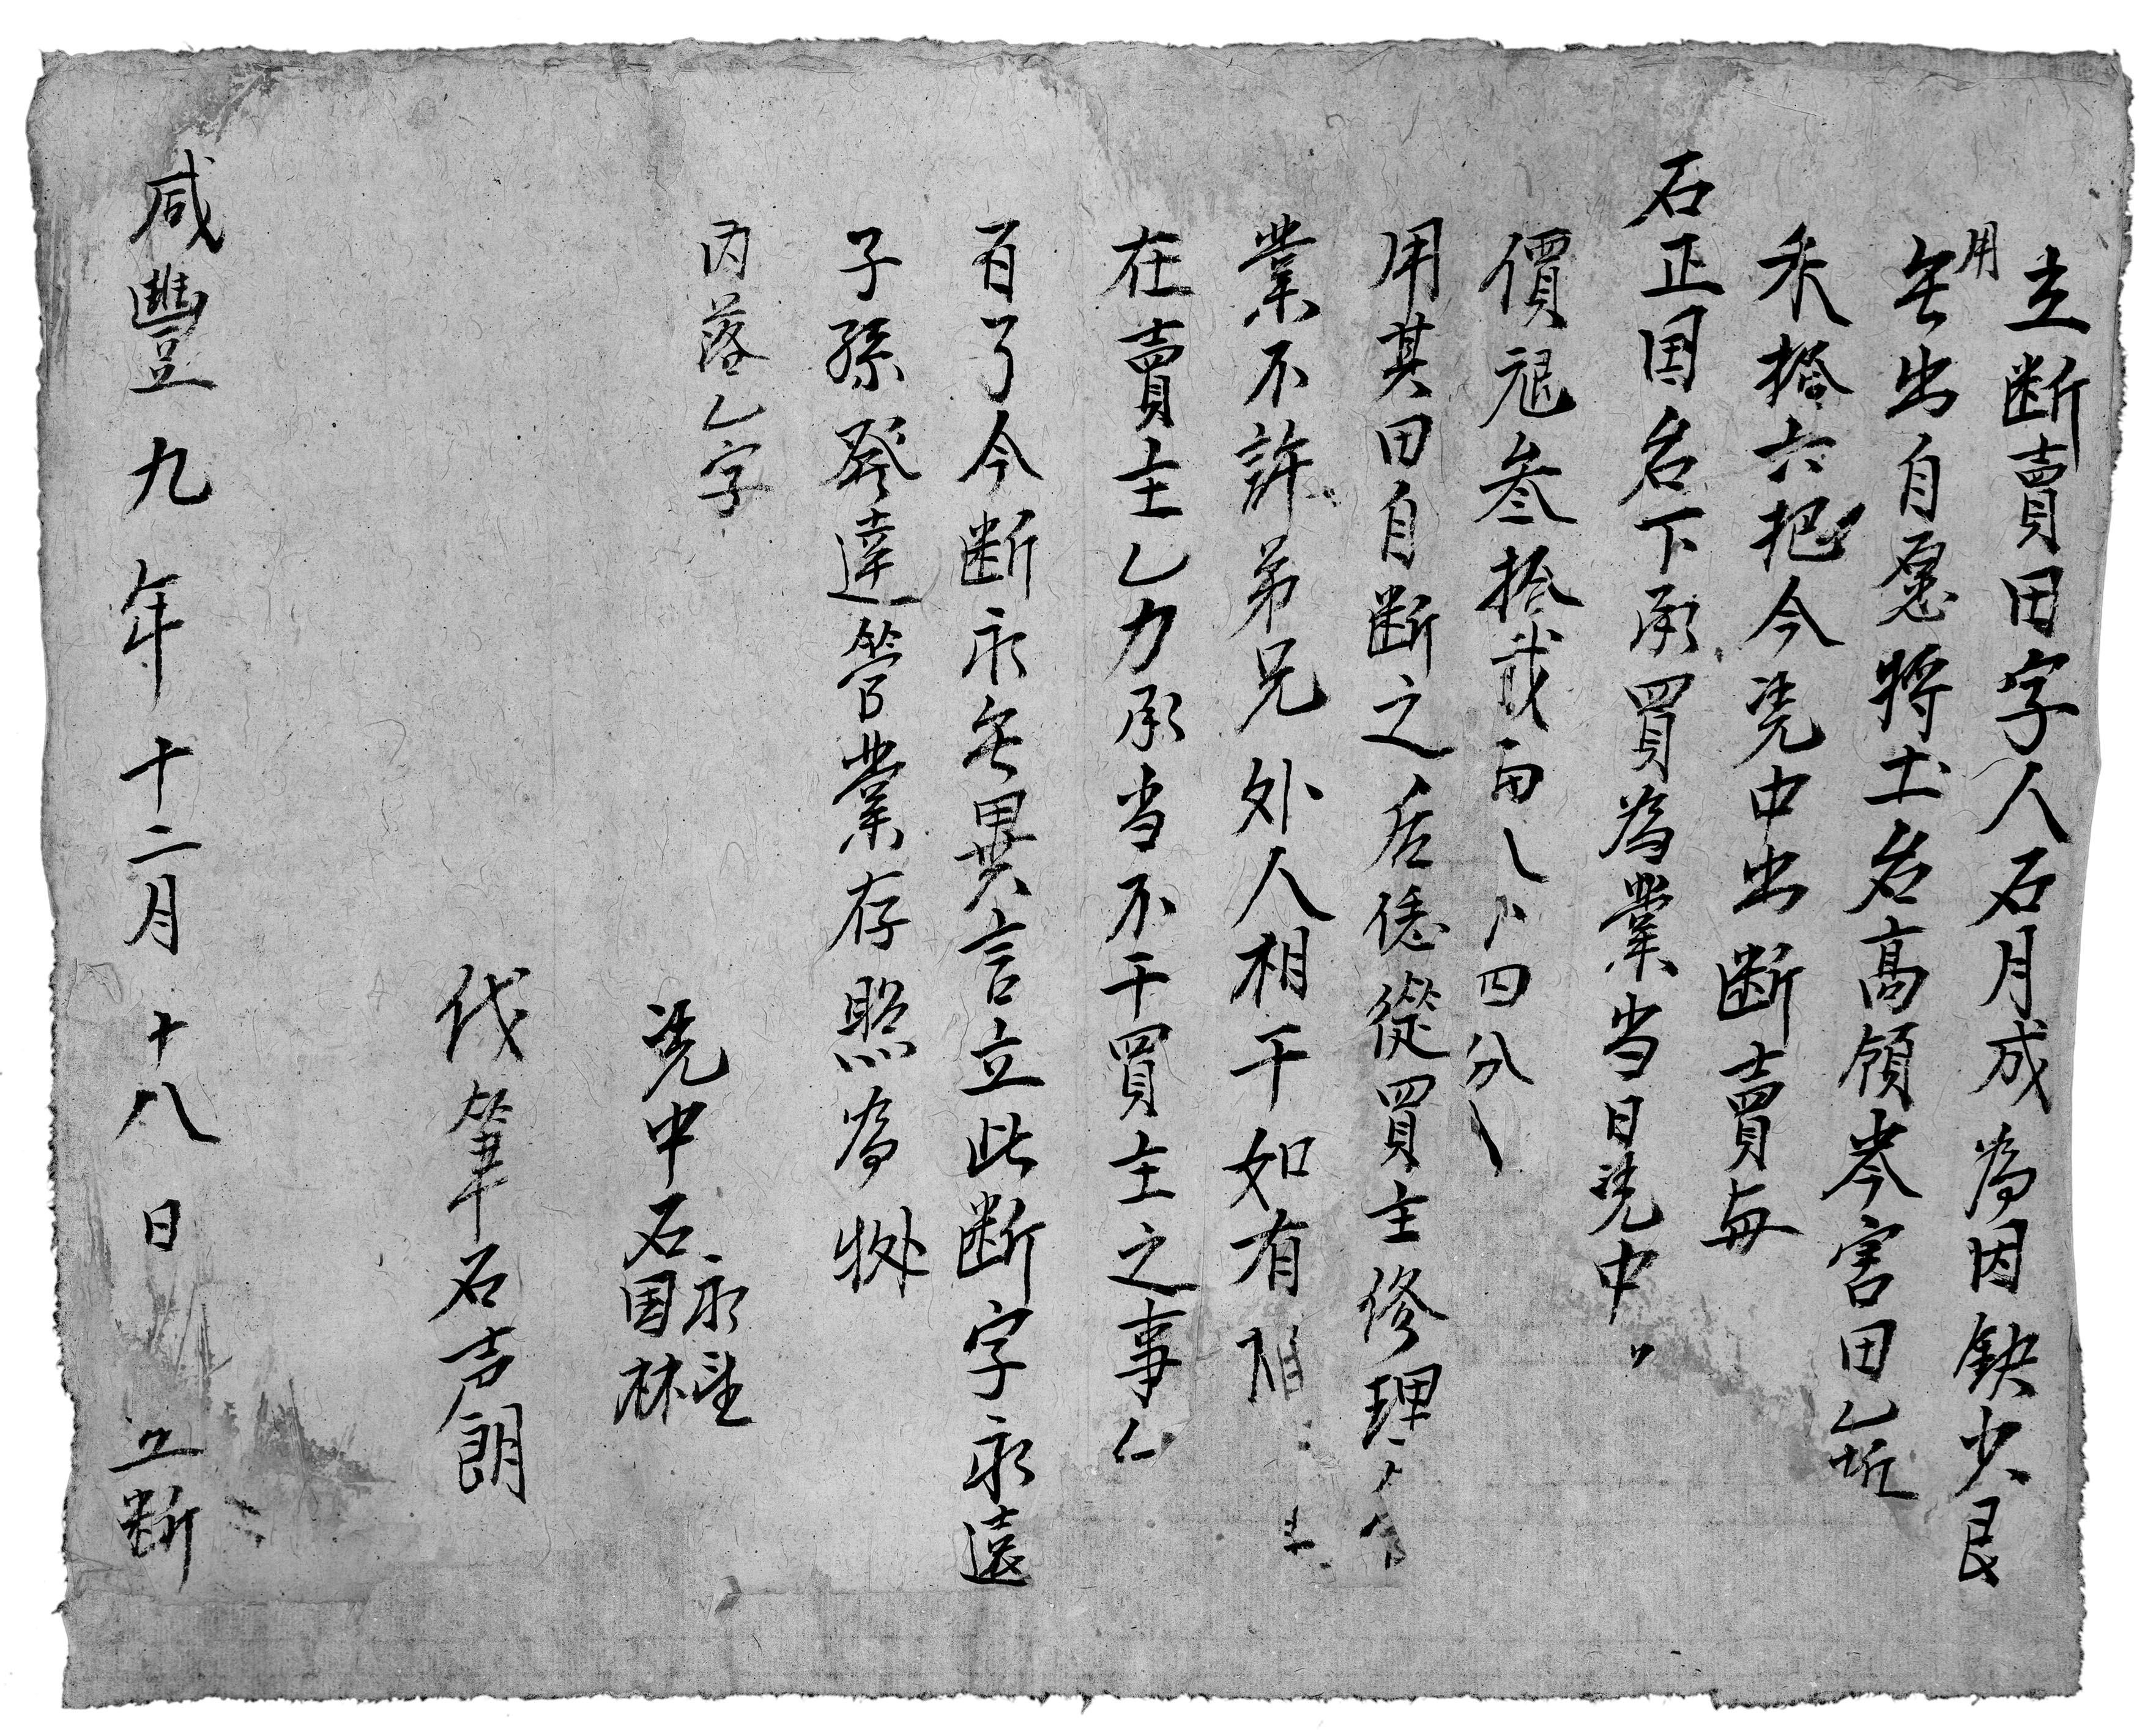 立断賣田字人石月成為因缺少艮
用
無出自愿將土名高領岑害田乙坵
禾拾六把今凴中出断賣与
石正国名下承買為業当日凴中〃
價艮叁拾弍両八卜四分
用其田自断之后恁從買主修理
業不許弟兄外人相干如有
在賣主乙力承当不干買主之事仁
百了今断永無異言立此断字永遠
子孫發達管業存照為拠
内落乙字
凴中石永望
国林
代筆石声朗
咸豐九年十二月十八日立断